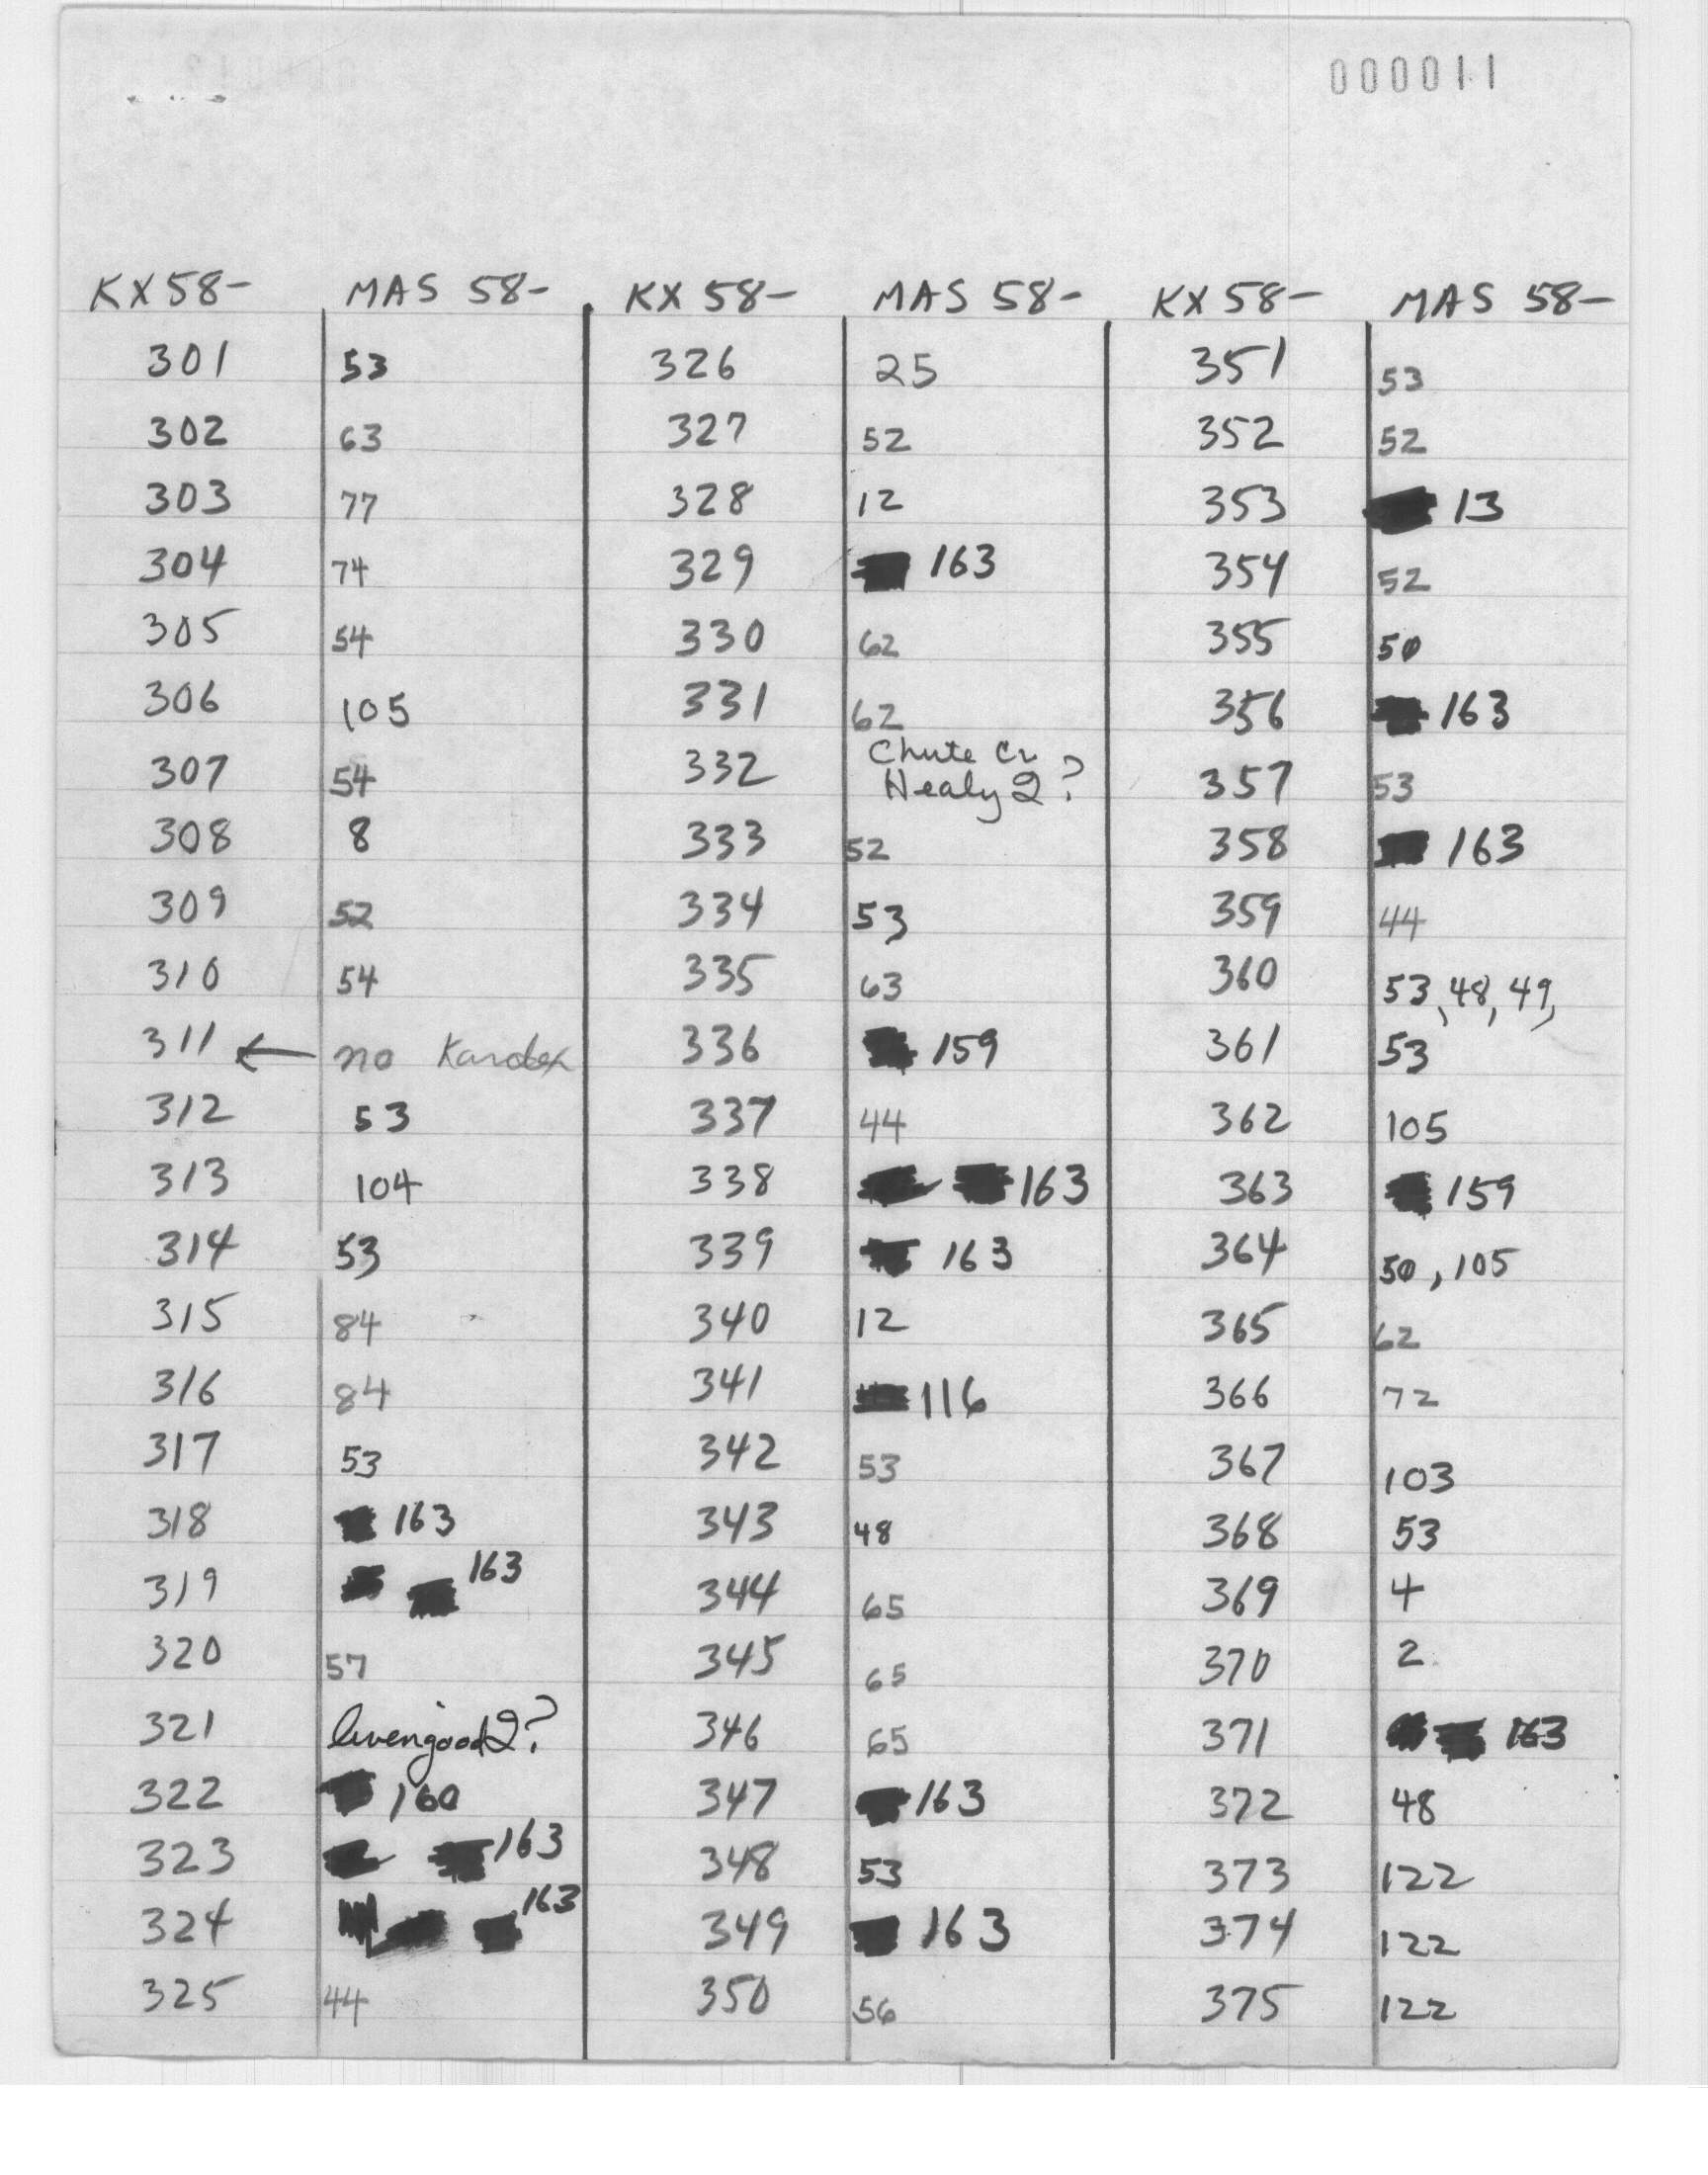 000011
KX 58- MAS 58- KX 58- MAS 58- KX 58- MAS 58-
301 53 326 25 351 53
302 63 327 52 352 52
303 77 328 12 353 13
304 74 329 163 354 52
305 54 330 62 355 50
306 105 331 62 356 163
307 54 332 Chute Cr Healy 2? 357 53
308 8 333 52 358 163
309 52 334 53 359 44
310 54 335 63 360 53, 48, 49,
311 ← no Kardex 336 159 361 53
312 53 337 44 362 105
313 104 338 163 363 159
314 53 339 163 364 50, 105
315 84 340 12 365 62
316 84 341 116 366 72
317 53 342 53 367 103
318 163 343 48 368 53
319 163 344 65 369 4
320 57 345 65 370 2
321 livengood 2? 346 65 371 163
322 160 347 163 372 48
323 163 348 53 373 122
324 163 349 163 374 122
325 44 350 56 375 122